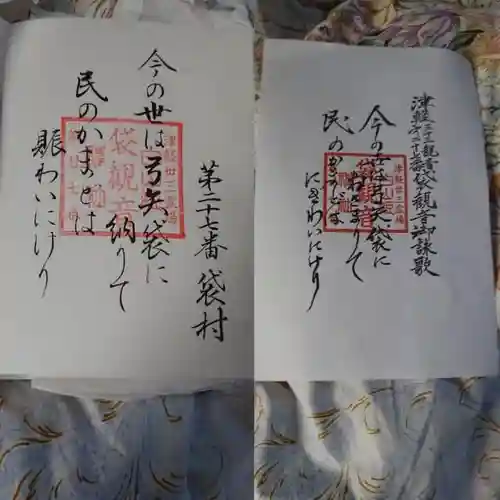 第二十七番 袋村
今の世は弓矢袋に
納りて
民のかまとは
賑わいにけり
津軽三十三観音
第二十七番袋観音御詠歌
今の世は弓矢袋に
おさまりて
民のかまどは
にぎわいにけり
津軽卅三霊場
袋観音